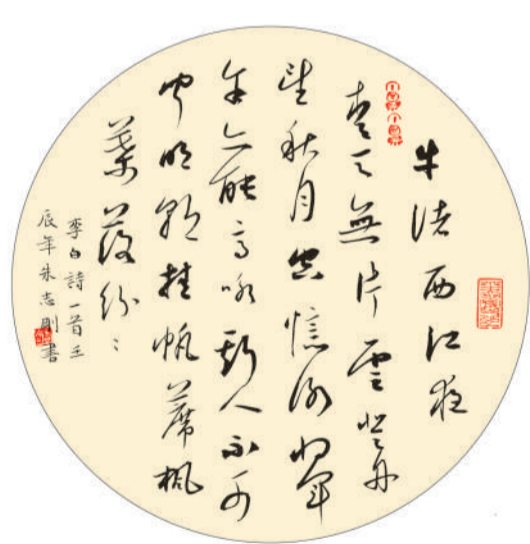 牛渚西江夜
青天無片雲登舟
望秋月空憶謝將軍
余亦能高咏斯人不可
聞明朝挂帆蓆楓
葉落紛〻
李白詩一首壬
辰年朱志剛書